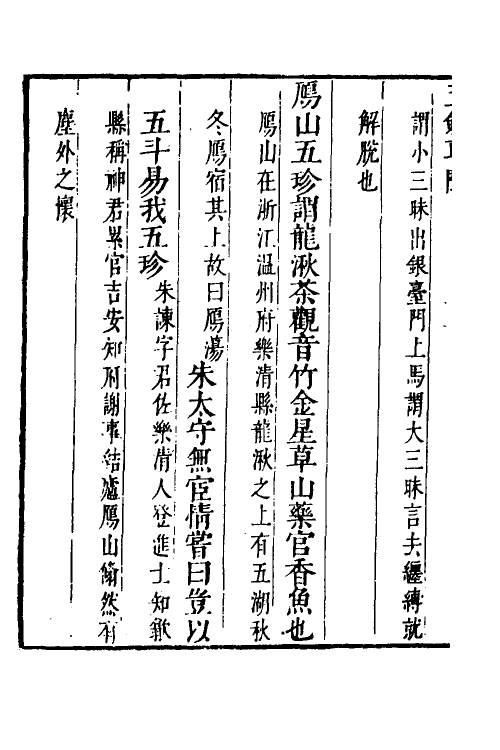 謂小三昧出銀臺門上馬謂大三昧言去纏縛就
解脫也
鴈山五珍謂龍湫茶觀音竹金星草山藥官香魚也
鴈山在浙江温州府樂清縣龍湫之上有五湖秋
冬鴈宿其上故曰鴈蕩朱太守無宦情嘗曰豈以
五斗易我五珍朱諫字君佐樂清人登進士知歙
縣稱神君累官吉安知府謝事結廬鴈山翛然有
塵外之懷